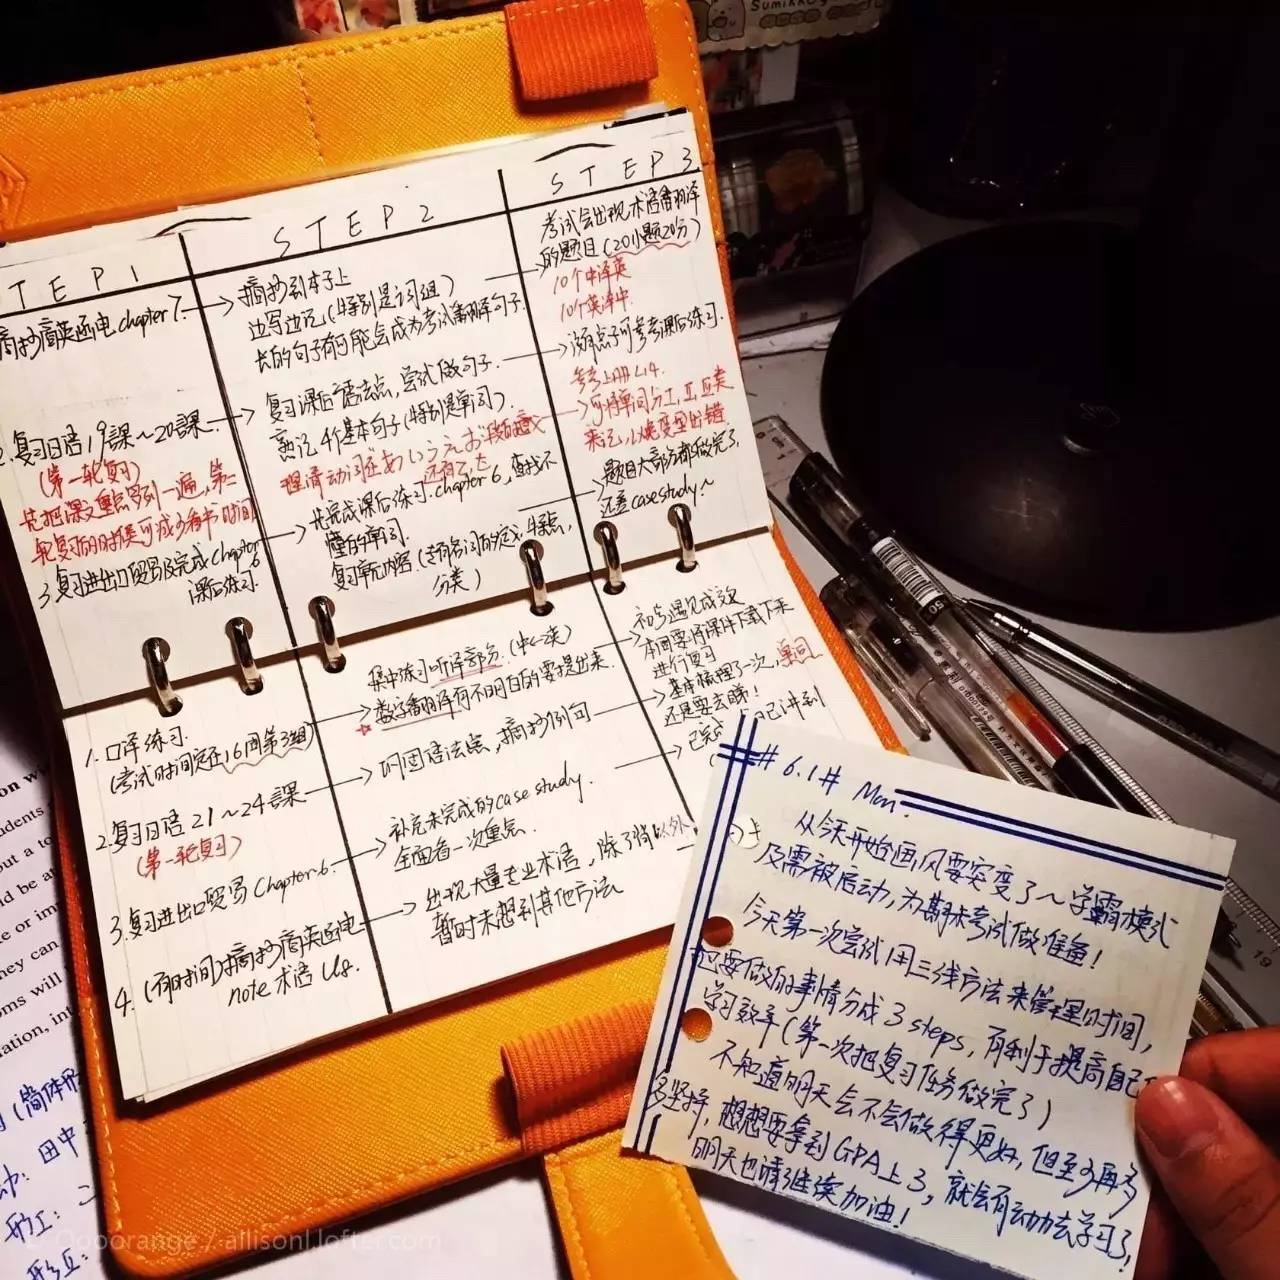 STEP 2
STEP 3
TEP 1
摘抄商英函电 chapter 7.
摘抄到本子上
边写边记(特别是词组)
长的句子有可能会成为考试翻译句子.
考试会出现术语翻译
的题目(20小题20分)
10个中译英
10个英译中
2.复习日语19課~20課
(第一轮复习)
先把课文重点罗列一遍,第二
轮复习的时候可减少看书时间
复习课后语法点,尝试做句子.
熟记4个基本句子(特别是单词).
理清动词在あいうえお段的意义
语法点子可参考课后练习.
参考上册L14.
可将单词分I,II,III类
来记,小烧变型出错
3.复习进出口贸易及完成Chapter 6
课后练习.
先完成课后练习.chapter 6,查找不
懂的单词.
复习单元内容(专有名词的定义,特点,
分类)
题目大部分都做完了,
还差case study~
1.口译练习.
(考试时间定在16周第3组)
集中练习听译部分.(中→英)
数字翻译有不明白的要提出来.
初步遇见成效
本周要将课件下载下来
进行复习
2.复习日语21~24課
(第一轮复习)
巩固语法点,摘抄例句
基本梳理了一次,单词
还是要去瞄!
3.复习进出口贸易Chapter 6.
补充未完成的case study.
全面看一次重点.
4.(有时间)摘抄商英函电
note 术语 U8.
出现大量专业术语,除了背以外
暂时未想到其他方法
# 6.1 # Mon.
从今天开始画风要突变了~学霸模式
及需被启动,为期末考试做准备!
今天第一次尝试用三线方法来管理时间,
把要做的事情分成3 steps,有利于提高自己
学习效率(第一次把复习任务做完了)
不知道明天会不会做得更好,但至少再多
多坚持,想想要拿到GPA上3,就会有动力去学习了,
明天也请继续加油!
Oooorange / allisonl.lofter.com
Sumikko
19